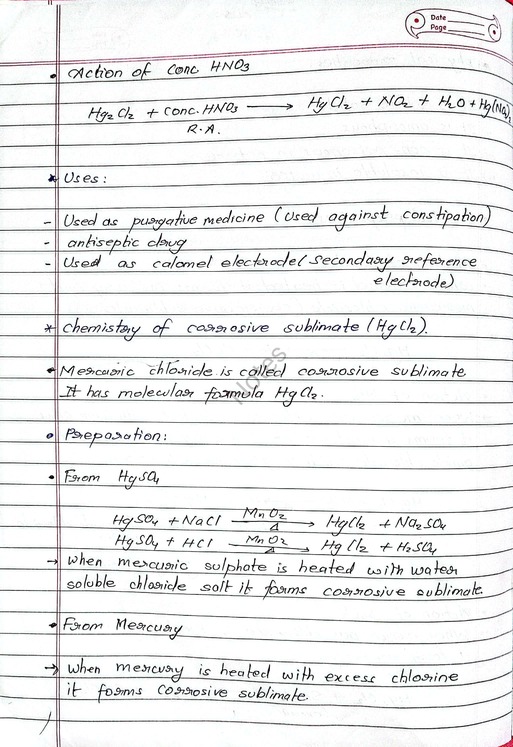 Date
Page
• Action of Conc. HNO3
Hg2Cl2 + Conc. HNO3 ⟶ HgCl2 + NO2 + H2O + Hg(NO3)2
R.A.
* Uses:
- Used as purgative medicine (Used against constipation)
- antiseptic drug
- Used as calomel electrode (secondary reference
electrode)
* Chemistory of corrosive sublimate (HgCl2).
• Mercuric chloride is called corrosive sublimate
It has molecular formula HgCl2.
Notes
• Preparation:
• From HgSO4
HgSO4 + NaCl MnO2 ⟶ Δ HgCl2 + Na2SO4
HgSO4 + HCl MnO2 ⟶ Δ HgCl2 + H2SO4
→ When mercuric sulphate is heated with water
soluble chloride salt it forms corrosive sublimate.
• From Mercury
→ When mercury is heated with excess chlorine
it forms corrosive sublimate.